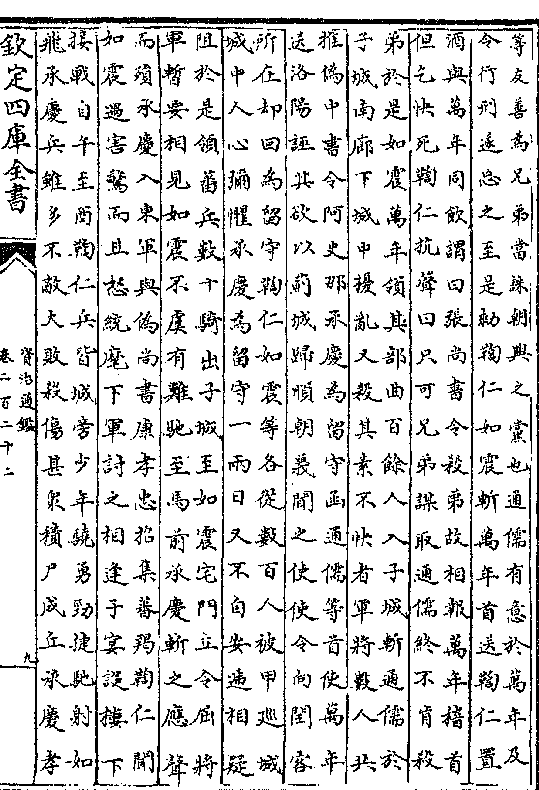 等友善為兄弟當誅朝興之黨也通儒有意於萬年及
令行刑遂忘之至是勅鞠仁如震斬萬年首送鞠仁置
酒與萬年同飲謂曰張尚書令殺弟故相報萬年稽首
但乞快死鞠仁抗聲曰只可兄弟謀取通儒終不肯殺
弟於是如震萬年領其部曲百餘人入子城斬通儒於
子城南廊下城中擾亂又殺其素不快者軍將數人共
推偽中書令阿史那承慶為留守函通儒等首使萬年
送洛陽誣其欲以薊城歸順朝義聞之使使令向閏客
所在却回為留守鞠仁如震等各從數百人被甲巡城
城中人心彌懼承慶為留守一兩日又不自安遞相疑
阻於是領蕃兵數十騎出子城至如震宅門立令屈將
軍暫要相見如震不虞有難馳至馬前承慶斬之應聲
而殞承慶入東軍與偽尚書康孝忠招集蕃羯鞠仁聞
如震遇害驚而且怒統麾下軍討之相逢于宴設樓下
接戰自午至酉鞠仁兵皆城旁少年驍勇勁捷馳射如
飛承慶兵雖多不敵大敗殺傷甚衆積尸成丘承慶孝
欽定四庫全書
資治通鑑
卷二百二十二
九